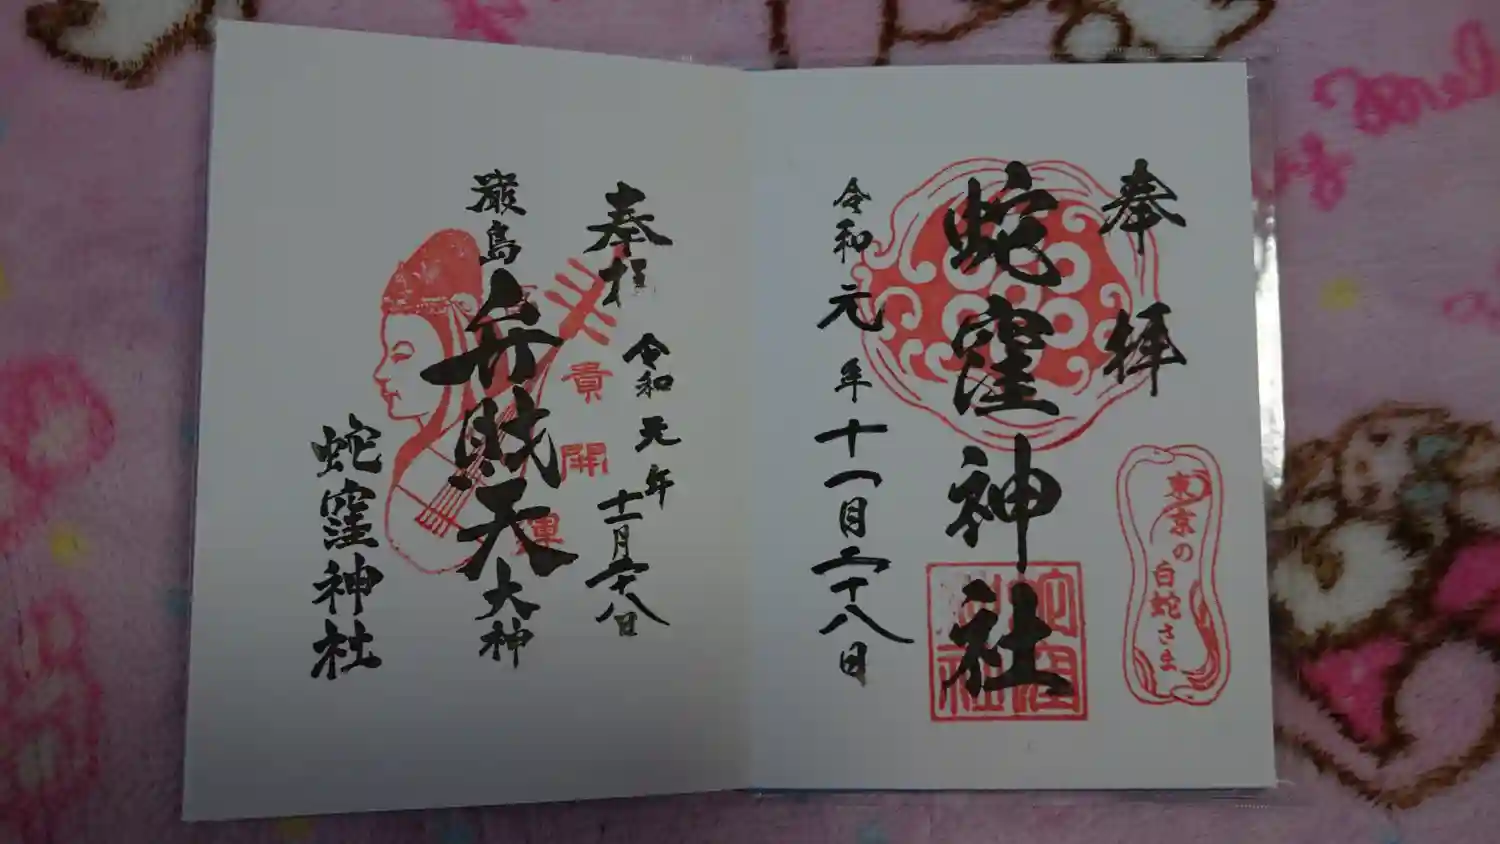 奉拝
蛇窪神社
令和元年十一月二十八日
東京の
白蛇さま
奉拝
令和元年
十一月二十八日
貴
開
運
厳島
弁財天
大神
蛇窪神社